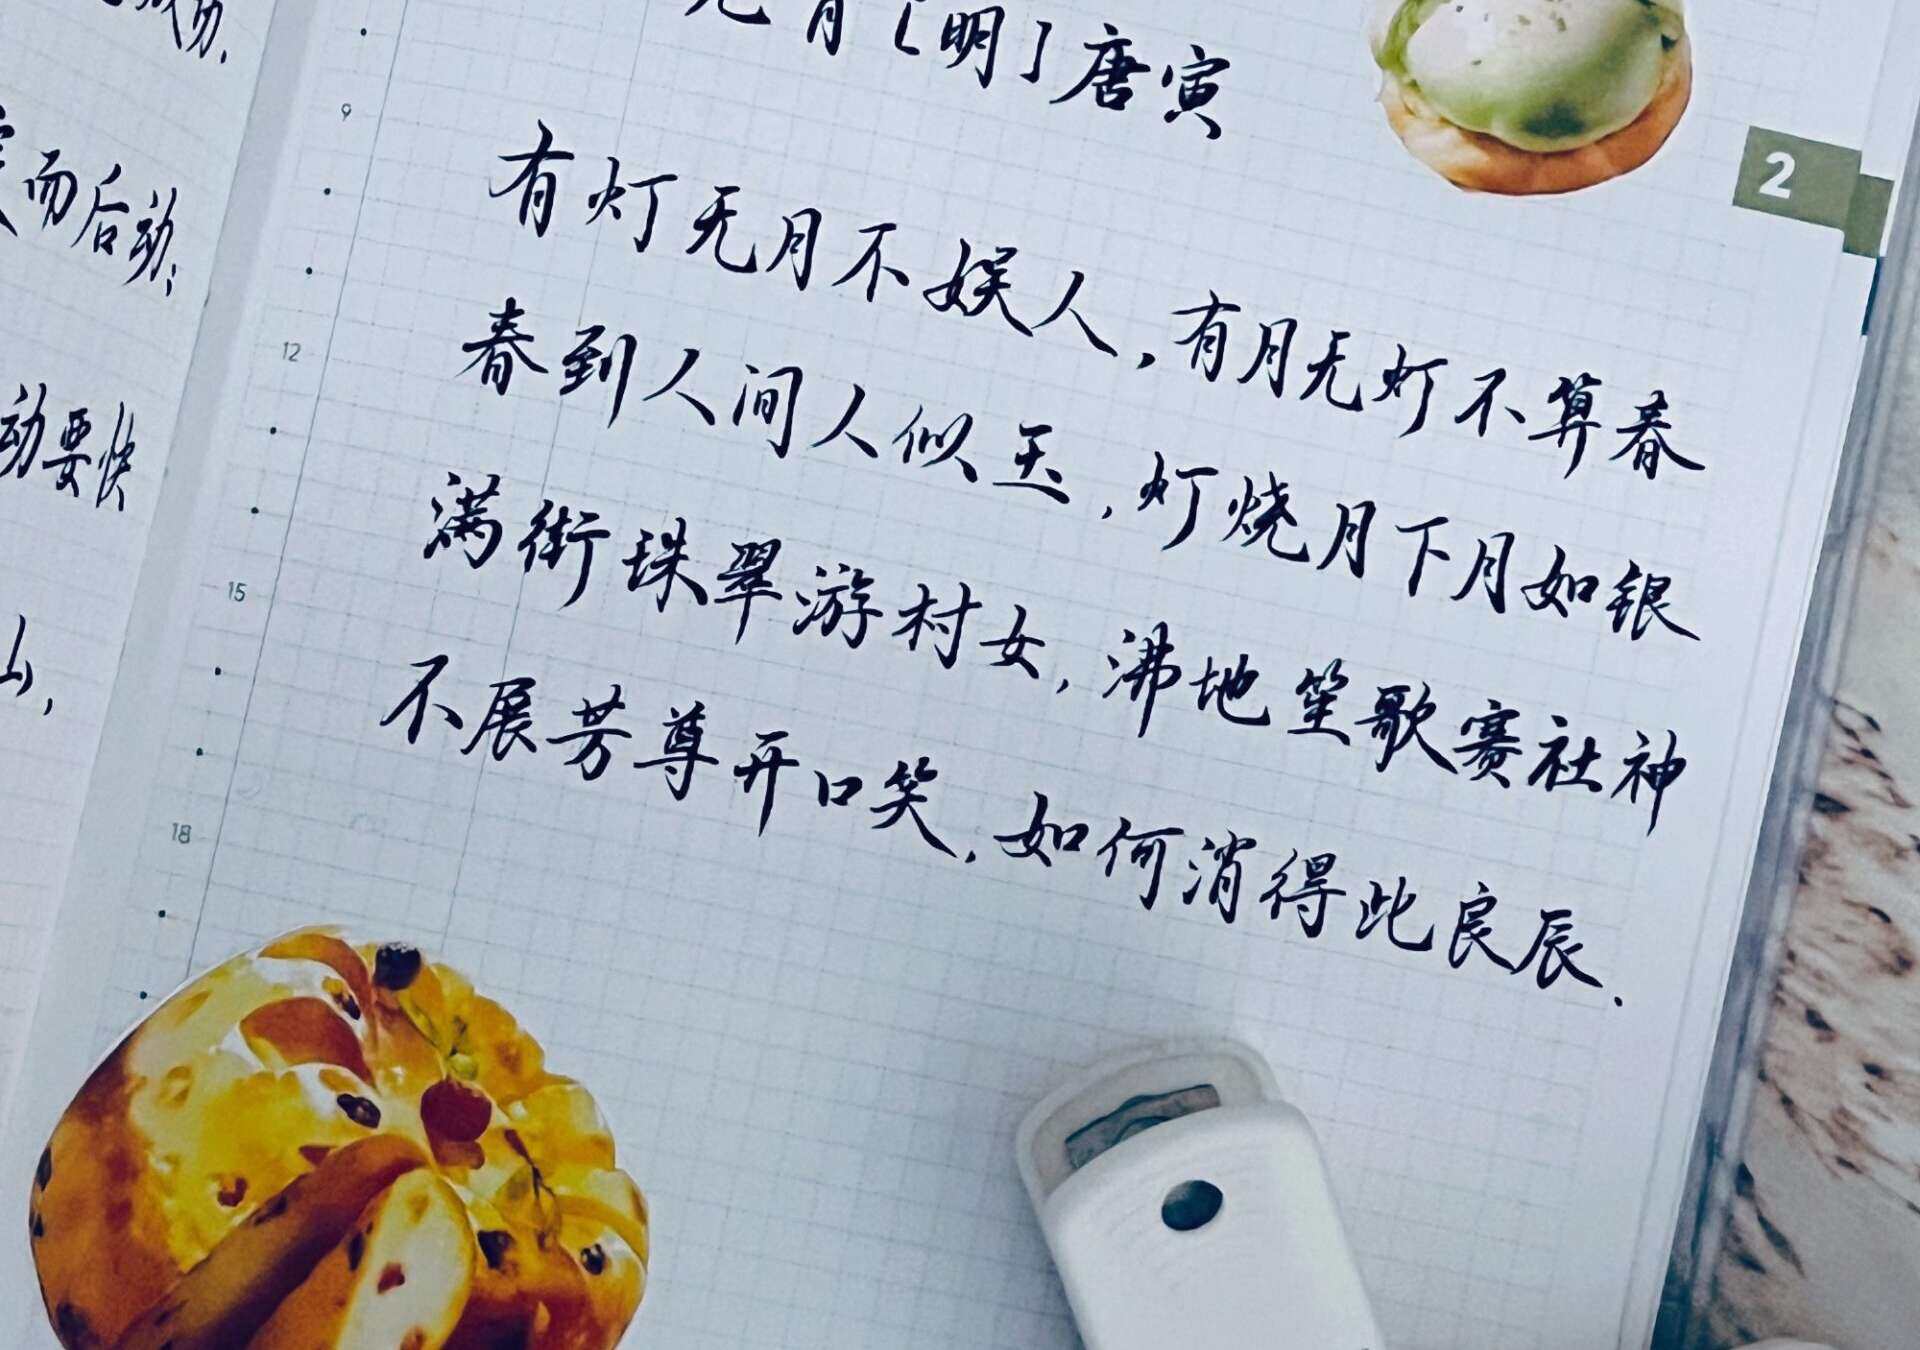 元宵[明]唐寅
有灯无月不娱人,有月无灯不算春
春到人间人似玉,灯烧月下月如银
满街珠翠游村女,沸地笙歌赛社神
不展芳尊开口笑,如何消得此良辰.
而后动;
动要快
山,
9
12
15
18
2